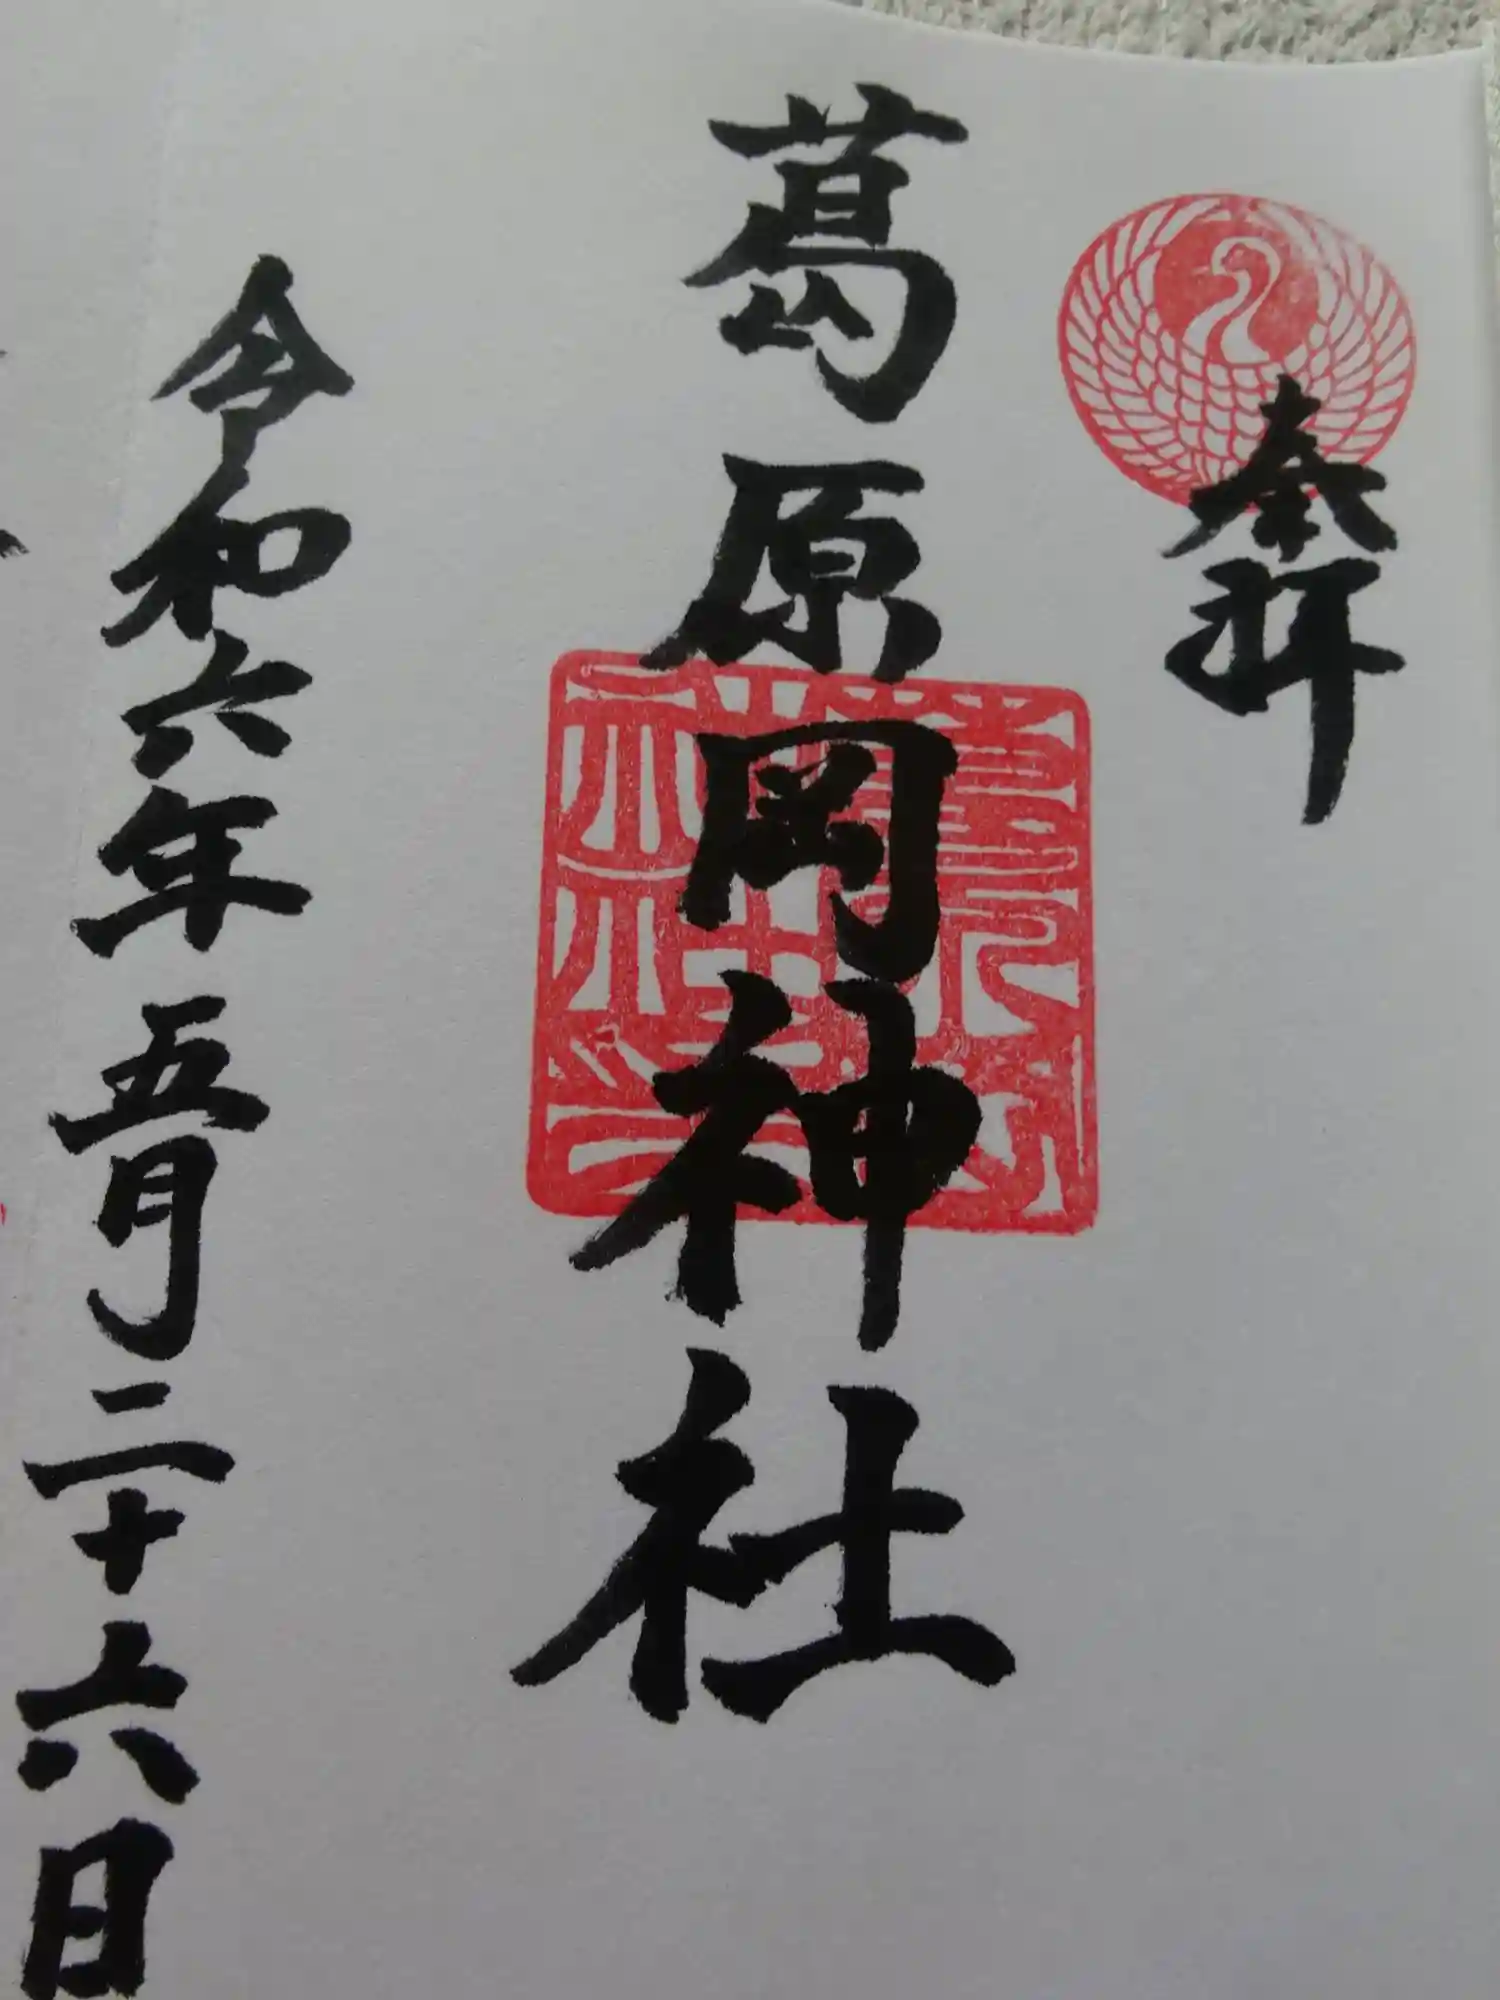 奉拝
葛原岡神社
令和六年五月二十六日